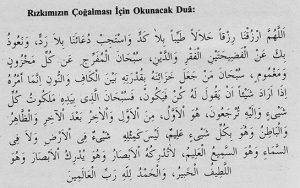 Rızkımızın Çoğalması İçin Okunacak Duâ:
اَللّٰهُمَّ ارْزُقْنَا رِزْقًا حَلَالًا طَيِّبًا بِلَا كَدٍّ وَاسْتَجِبْ دُعَائَنَا بِلَا رَدٍّ، وَنَعُوذُ
بِكَ عَنِ الْفَضِيحَتَيْنِ الْفَقْرِ وَالدَّيْنِ، سُبْحَانَ الْمُفَرِّجِ عَنْ كُلِّ مَحْزُونٍ
وَمَغْمُومٍ، سُبْحَانَ مَنْ جَعَلَ خَزَائِنَهُ بِقُدْرَتِهِ بَيْنَ الْكَافِ وَالنُّونِ اِنَّمَا اَمْرُهُ
اِذَا اَرَادَ شَيْئًا اَنْ يَقُولَ لَهُ كُنْ فَيَكُونُ، فَسُبْحَانَ الَّذِى بِيَدِهِ مَلَكُوتُ كُلِّ
شَىْءٍ وَاِلَيْهِ تُرْجَعُونَ، هُوَ الْاَوَّلُ مِنَ الْاَوَّلِ وَالْاٰخِرُ بَعْدَ الْاٰخِرِ وَالظَّاهِرُ
وَالْبَاطِنُ وَهُوَ بِكُلِّ شَىْءٍ عَلِيمٌ، لَيْسَ كَمِثْلِهِ شَىْءٌ فِى الْاَرْضِ وَلَا فِى
السَّمَاءِ وَهُوَ السَّمِيعُ الْعَلِيمُ، لَاتُدْرِكُهُ الْاَبْصَارُ وَهُوَ يُدْرِكُ الْاَبْصَارَ وَهُوَ
اللَّطِيفُ الْخَبِيرُ، وَالْحَمْدُ لِلّٰهِ رَبِّ الْعَالَمِينَ